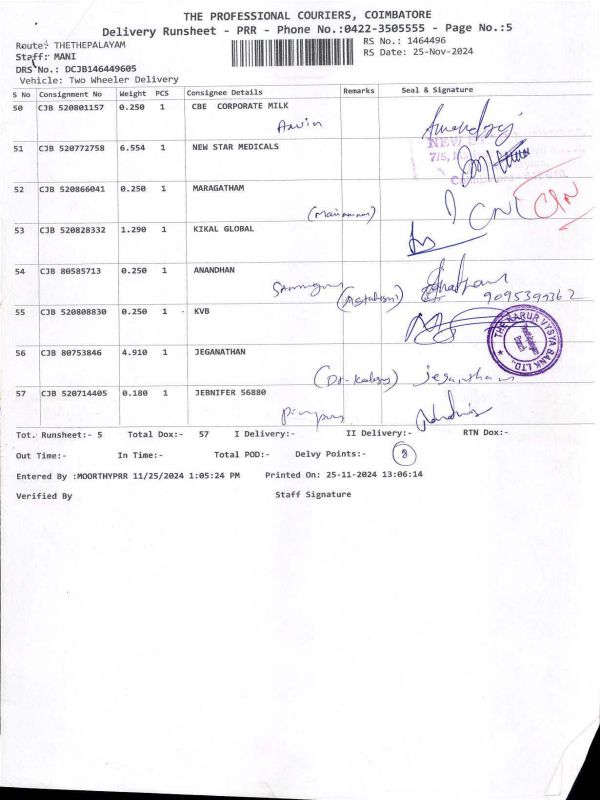 THE PROFESSIONAL COURIERS, COIMBATORE
Delivery Runsheet - PRR - Phone No.:0422-3505555 - Page No.:5
Route: THETHEPALAYAM RS No.: 1464496
Staff: MANI RS Date: 25-Nov-2024
DRS No.: DCJB146449605
Vehicle: Two Wheeler Delivery
S No Consignment No Weight PCS Consignee Details Remarks Seal & Signature
50 CJB 520801157 0.250 1 CBE CORPORATE MILK
51 CJB 520772758 6.554 1 NEW STAR MEDICALS
NEW
7/5,
52 CJB 520866041 0.250 1 MARAGATHAM
53 CJB 520828332 1.290 1 KIKAL GLOBAL
54 CJB 80585713 0.250 1 ANANDHAN
9095399362
55 CJB 520808830 0.250 1 KVB
THE KARUR VYSYA BANK LTD.
Branch
56 CJB 80753846 4.910 1 JEGANATHAN
57 CJB 520714405 0.180 1 JEBNIFER 56880
Tot. Runsheet:- 5 Total Dox:- 57 I Delivery:- II Delivery:- RTN Dox:-
Out Time:- In Time:- Total POD:- Delvy Points:- 8
Entered By :MOORTHYPRR 11/25/2024 1:05:24 PM Printed On: 25-11-2024 13:06:14
Verified By Staff Signature